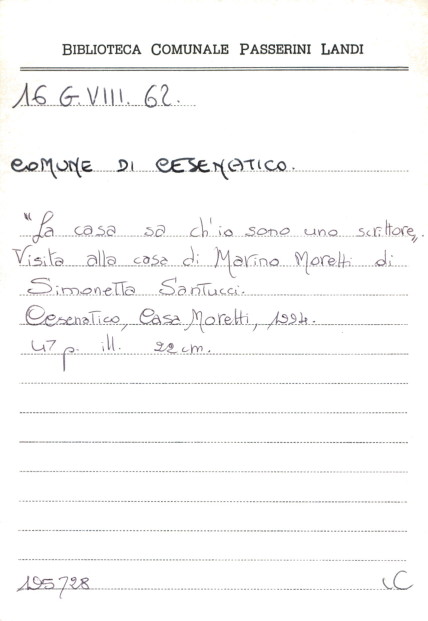 BIBLIOTECA COMUNALE PASSERINI LANDI
16 G.VIII. 62.
COMUNE DI CESENATICO.
"La casa sa ch'io sono uno scrittore„
Visita alla casa di Marino Moretti di
Simonetta Santucci.
Cesenatico, Casa Moretti, 1994.
47 p. ill. 22 cm.
195728 iC